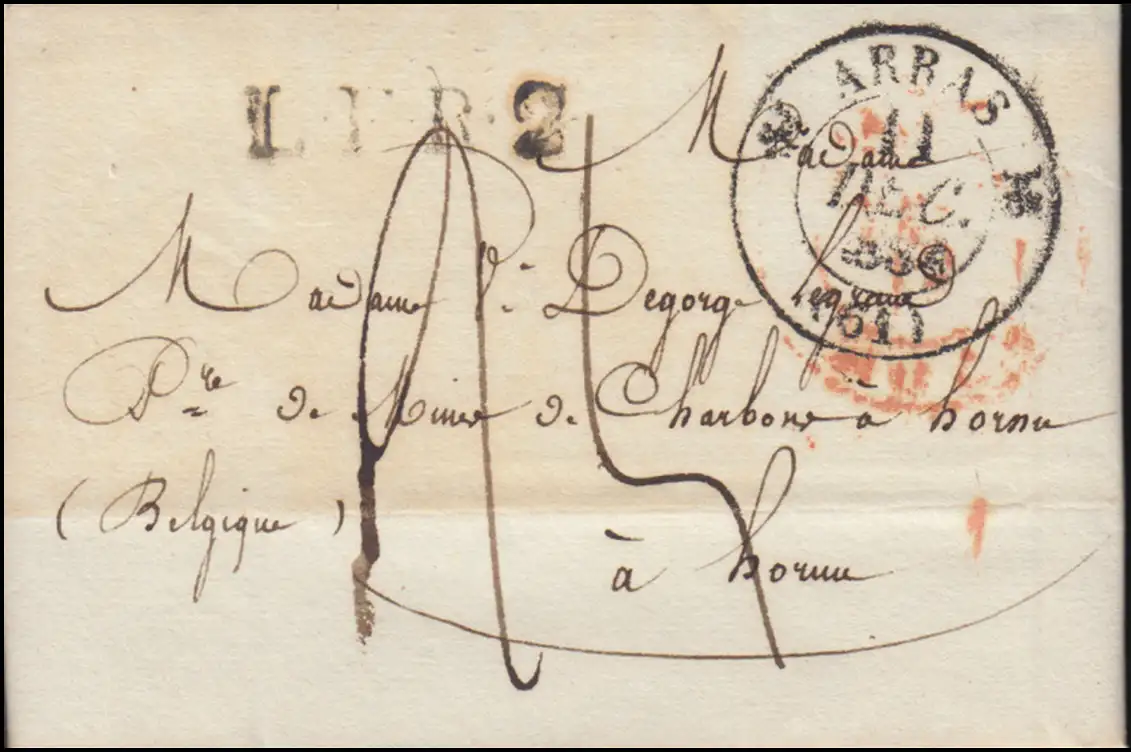 L.F.R.2
ARRAS
11
DEC.
(61)
Madame
Madame Ve Degorge Legrand
Pre de Mines de Charbons à hornu
(Belgique)
à hornu